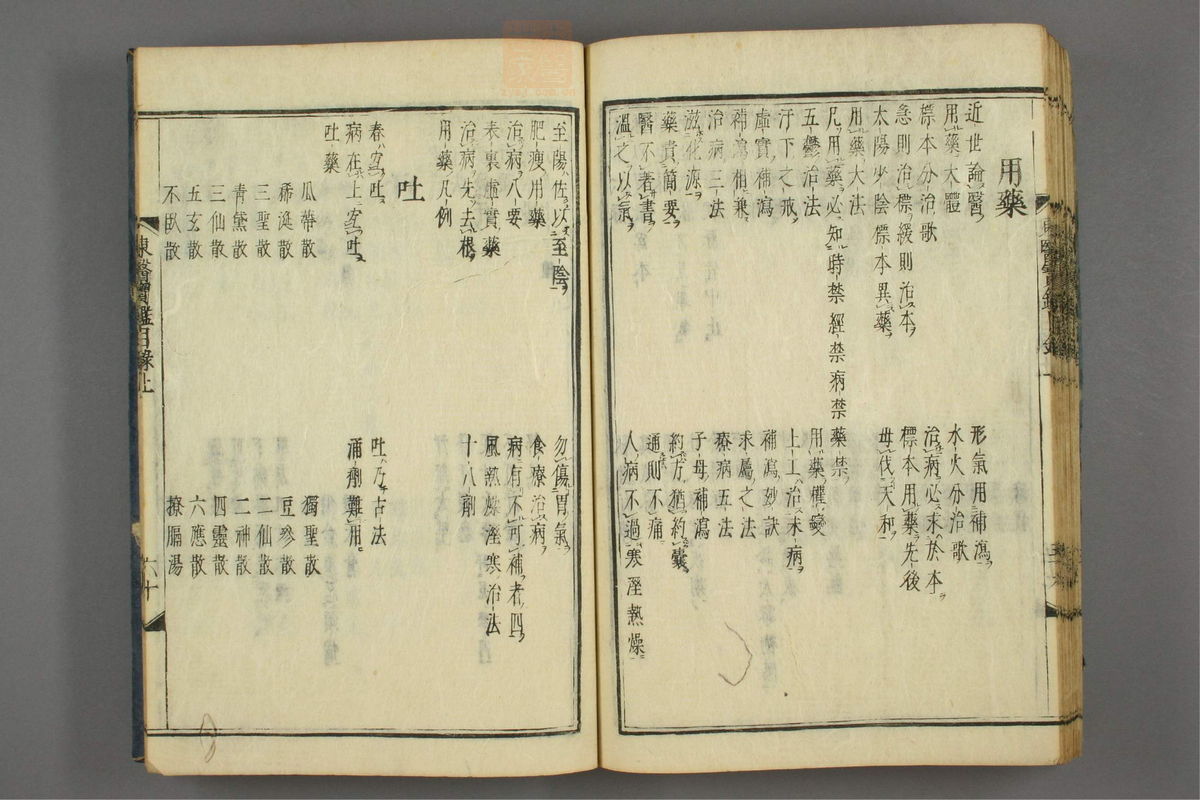 用藥
近世論醫 形氣用補瀉
用藥大體 水火分治歌
標本分治歌 治病必求於本
急則治標緩則治本 標本用藥先後
太陽少陰標本異藥 毋伐天和
用藥大法
凡用藥必知時禁經禁病禁藥禁
五鬱治法 用藥權變
汗下之戒 上工治未病
虛實補瀉 補瀉妙訣
補瀉相兼 求屬之法
治病三法 療病五法
滋化源 子母補瀉
藥貴簡要 約方猶約囊
醫不著書 通則不痛
溫之以氣 人病不過寒溼熱燥
至陽佐以至陰 勿傷胃氣
肥瘦用藥 食療治病
治病八要 病有不可補者四
表裏虛實藥 風熱燥溼寒治法
治病先去根 十八劑
用藥凡例
吐
春宜吐 吐乃古法
病在上宜吐 涌劑難用
吐藥
瓜蔕散 獨聖散
稀涎散 豆參散
三聖散 二仙散
靑黛散 二神散
三仙散 四靈散
五玄散 六應散
不臥散 撩膈湯
東醫寶鑑目錄上 六十